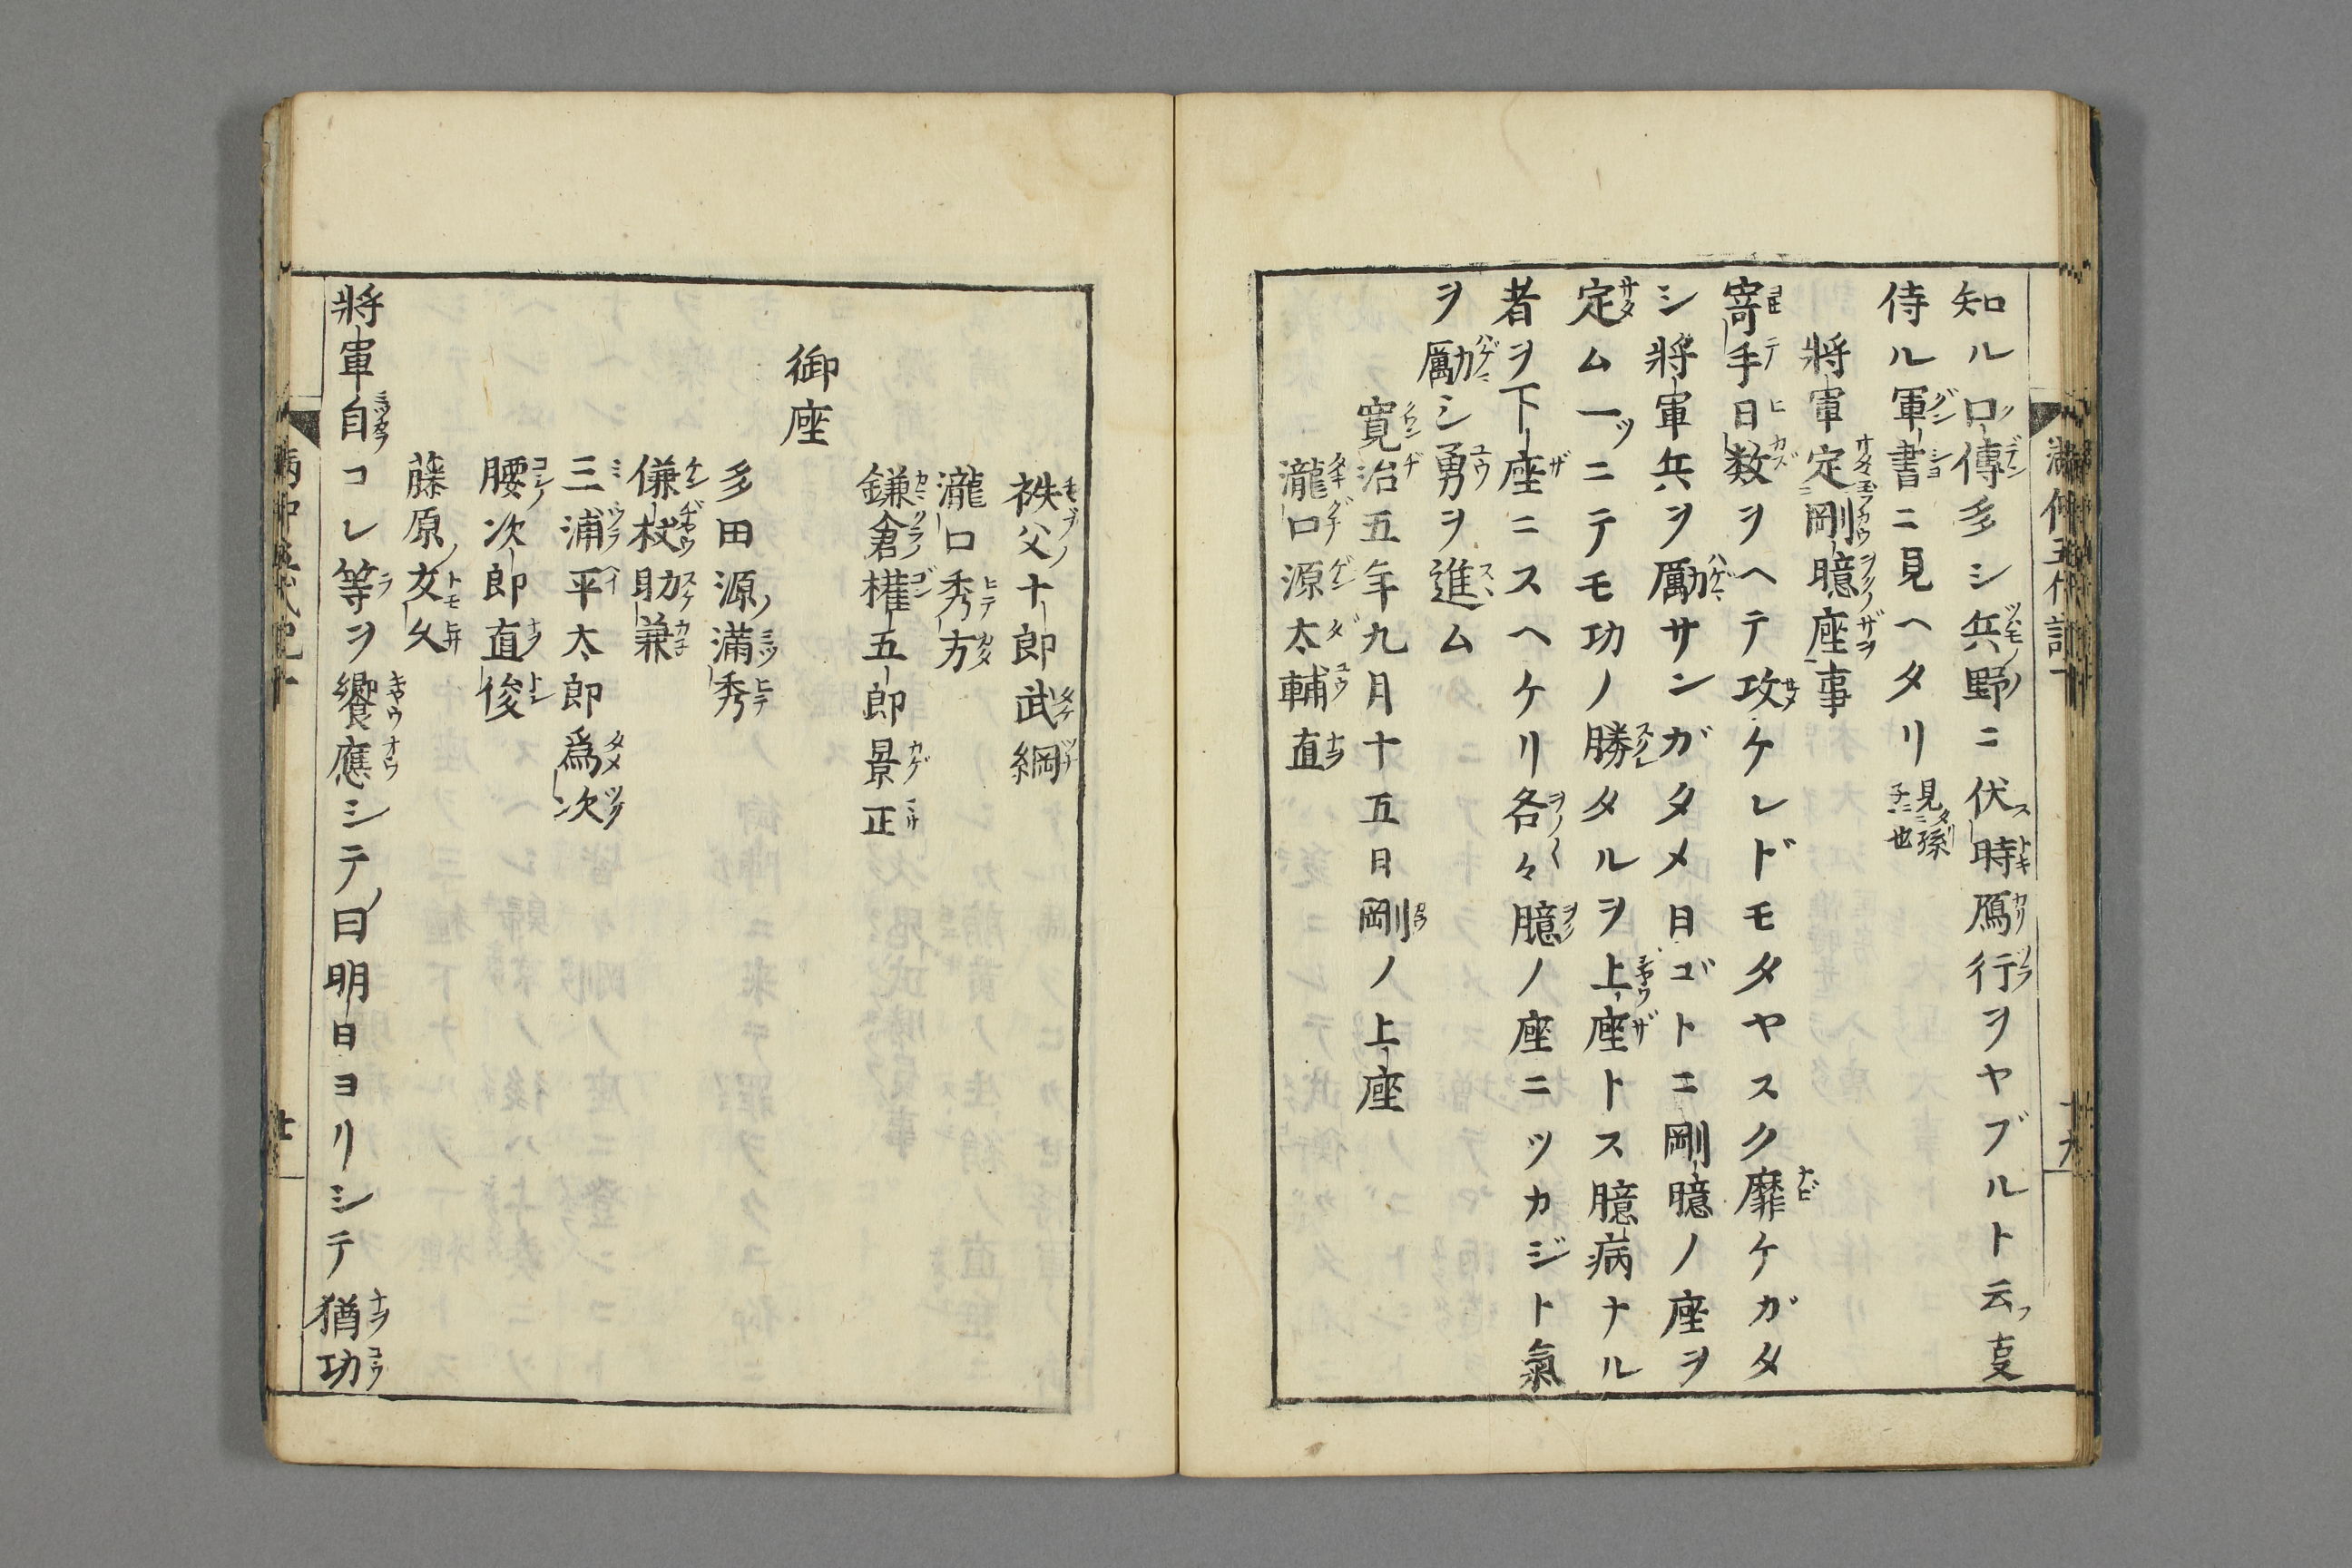 知ル口傳多シ兵野ニ伏時鴈行ヲヤブルト云叓
侍ル軍書ニ見ヘタリ見孫子ニ也
將軍定剛臆座事
寄手日数ヲヘテ攻ケレドモタヤスク靡ケガタ
シ將軍兵ヲ励サンガタメ日ゴトニ剛臆ノ座ヲ
定ム一ツニテモ功ノ勝タルヲ上座トス臆病ナル
者ヲ下座ニスヘケリ各々臆ノ座ニツカジト氣
ヲ励シ勇ヲ進ム
寛治五年九月十五日剛ノ上座
瀧口源太輔直
祑父十郎武綱
瀧口秀方
鎌倉権五郎景正
御座
多田源満秀
傔杖助兼
三浦平太郎爲次
腰次郎直俊
藤原友久
將軍自コレ等ヲ饗應シテ曰明日ヨリシテ猶功